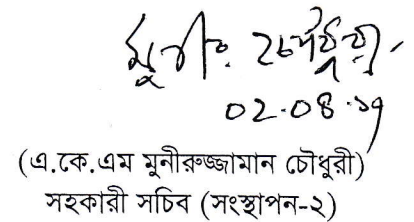 মুনীর চৌধুরী
০২.০৪.১৭
(এ.কে.এম মুনীরুজ্জামান চৌধুরী)
সহকারী সচিব (সংস্থাপন-২)